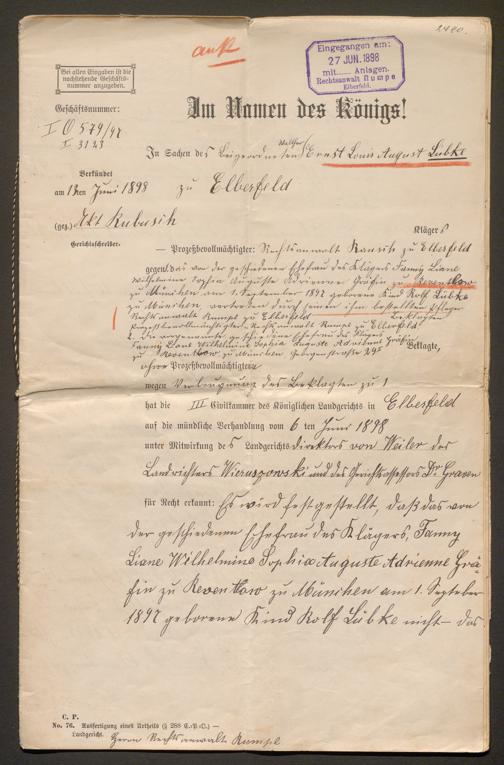 2490.
Eingegangen am:
27 JUN. 1898
mit Anlagen.
Rechtsanwalt Rumpe
Elberfeld.
Bei allen Eingaben ist die
nachstehende Geschäfts-
nummer anzugeben.
Im Namen des Königs!
Geschäftsnummer:
I O 579/97
I 3123
In Sachen des Beigeordneten Walther Ernst Louis August Lübke
zu Elberfeld
Verkündet
am 13ten Juni 1898
(gez.) Akt Kubusch
Gerichtsschreiber.
Klägers
— Prozeßbevollmächtigter: Rechtsanwalt zu Elberfeld
gegen das von der geschiedenen Ehefrau des Klägers Fanny Liane
Wilhelmine Sophia Auguste Adrienne Gräfin zu Reventlow
zu München am 1. September 1897 geborene Kind Rolf Lübke
zu München, vertreten durch seinen ihm bestellten Pfleger
Rechtsanwalt Rumpe zu Elberfeld Beklagten
Prozeßbevollmächtigter: Rechtsanwalt Rumpe zu Elberfeld
2. Die geschiedene Ehefrau des Klägers
Fanny Liane Wilhelmine Sophia Auguste Adrienne Gräfin
zu Reventlow zu München
Beklagte,
ohne Prozeßbevollmächtigten
wegen Verleugnung des Beklagten zu 1
hat die III Civilkammer des Königlichen Landgerichts in Elberfeld
auf die mündliche Verhandlung vom 6ten Juni 1898
unter Mitwirkung des Landgerichtsdirektors von Weiler des
Landrichters Wieruszowski und des Gerichtsassessors Dr. Graven
für Recht erkannt: Es wird festgestellt, daß das von
der geschiedenen Ehefrau des Klägers, Fanny
Liane Wilhelmine Sophia Auguste Adrienne Grä-
fin zu Reventlow zu München am 1. September
1897 geborene Kind Rolf Lübke nicht – das
C. P.
No. 76. Ausfertigung eines Urtheils (§ 288 C.-P.-O.) —
Landgericht. Herrn Rechtsanwalt Rumpe